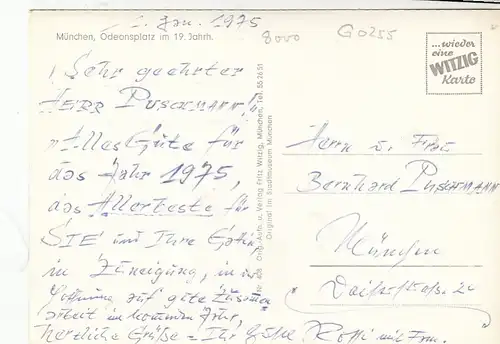 1. Jan. 1975
München, Odeonsplatz im 19. Jahrh.
8000 G0255
...wieder
eine
WITZIG
Karte
"Sehr geehrter
HERR PUSCHMANN!"
"Alles Gute für
das Jahr 1975,
das Allerbeste für
SIE und Ihre Gattin,
in Zuneigung, in
Hoffnung auf gute Zusammen
arbeit im kommenden Jahr,
Herzliche Grüße = Ihr mit Frau.
Orig.-Aufn. u. Verlag Fritz Witzig, München, Tel. 55 26 51
Original im Stadtmuseum München
Herrn u. Frau
Bernhard PUSCHMANN
München